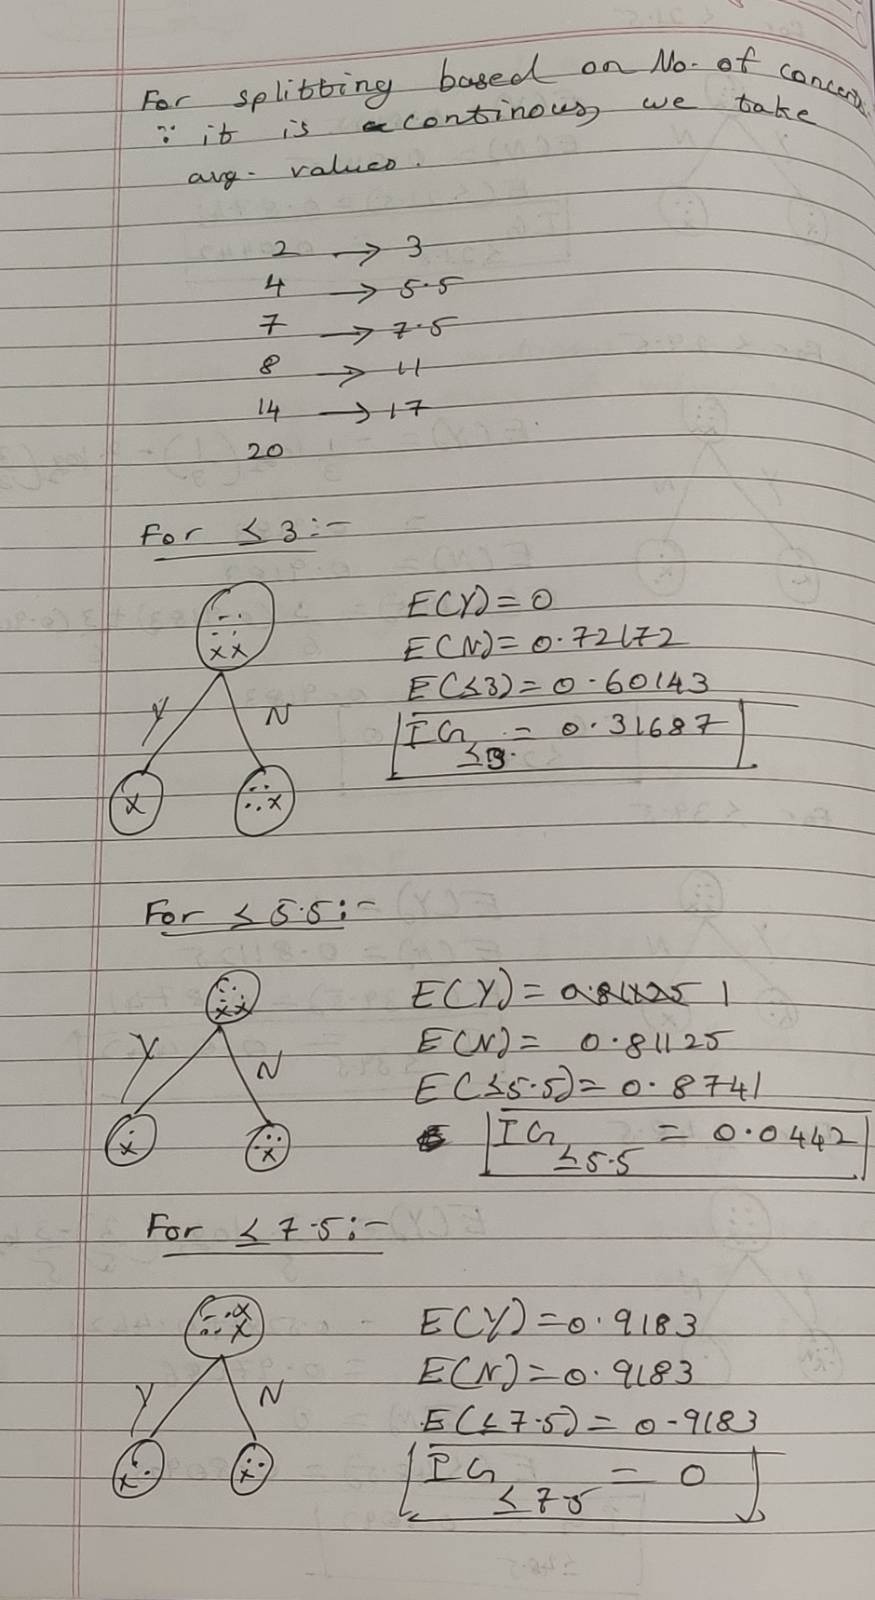 For splitting based on No. of concerts
∵ it is continous, we take
avg. values.
2 → 3
4 → 5.5
7 → 7.5
8 → 11
14 → 17
20
For ≤ 3 :-
E(Y) = 0
E(N) = 0.72172
E(≤3) = 0.60143
IG ≤3. = 0.31687
x x
Y N
x x
For ≤ 5.5 :-
E(Y) = 1
E(N) = 0.81125
E(≤5.5) = 0.8741
IG ≤5.5 = 0.0442
x x
Y N
x x
For ≤ 7.5 :-
E(Y) = 0.9183
E(N) = 0.9183
E(≤7.5) = 0.9183
IG ≤7.5 = 0
x x
Y N
x x